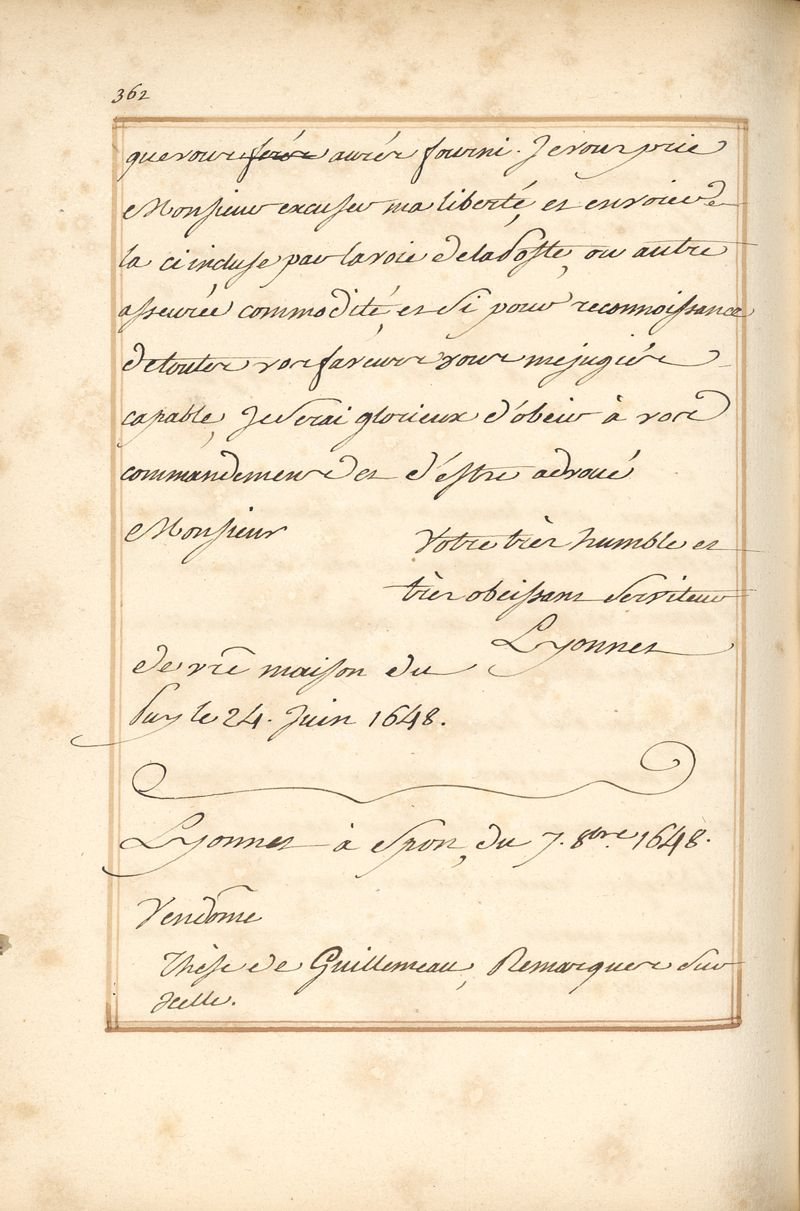 362
que vous ferés aurés fourni. Je vous prie
Monsieur excuser ma liberté, et envoier
la ci incluse par la voie de la Poste, ou autre
asseurée commodité, et Si pour reconnoissance
de toutes vos faveurs vous me jugiés
capable, Je Serai glorieux d'obeir à vos
commandemens et d'estre advoué
Monsieur
Votre très humble et
très obeissant Serviteur
Lyonnet
de vre maison du
Puy le 24. Juin 1648.
Lyonnet à Spon, du 7. 8bre. 1648.
Vendôme
Thèse de Guillemeau, Remarques Sur
Icelle.